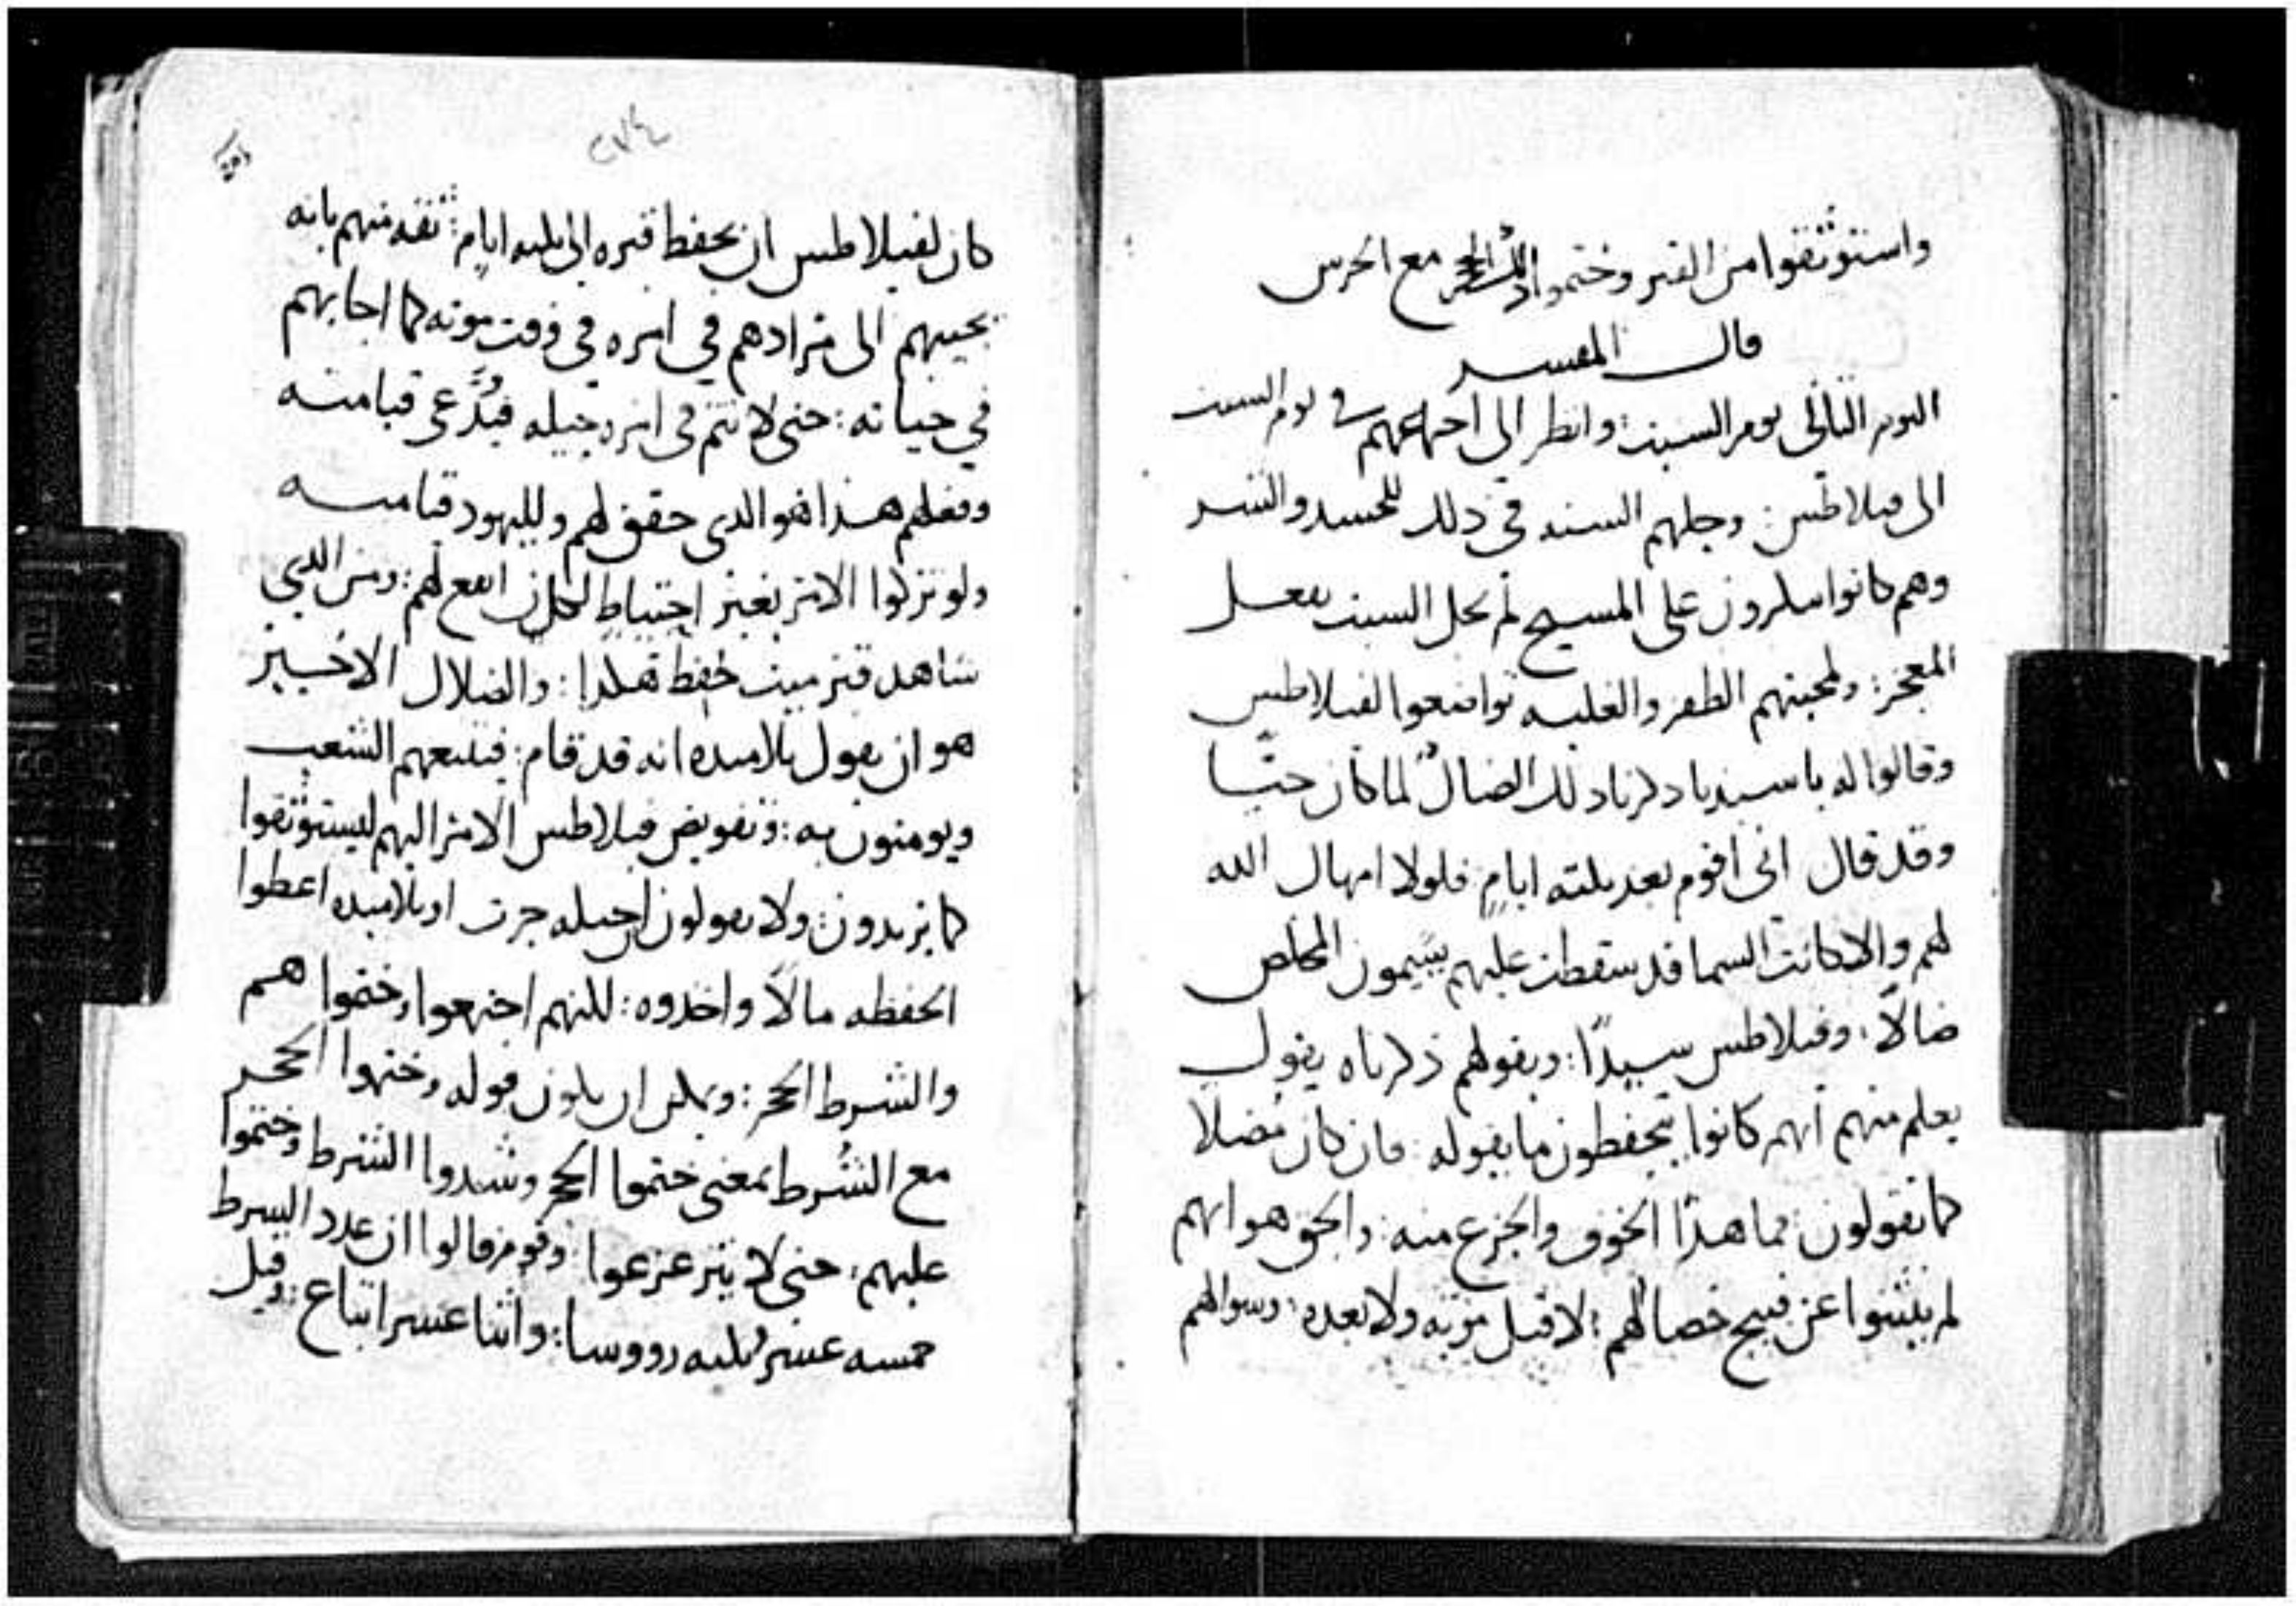 واستوثقوا من القبر وختموا ذلك الحجر مع الحرس
قال المفسر
اليوم التالى يوم السبت: وانظر الى اجتماعهم في يوم السبت
الى فيلاطس: وحلهم السنه في ذلك للحسد والشر
وهم كانوا ينكرون على المسيح لم يحل السبت بفعل
المعجز: ولمحبتهم الظفر والغلبه تواضعوا لفيلاطس
وقالوا له يا سيدنا ذكرنا ذلك الضال لما كان حيًا
وقد قال انى اقوم بعد ثلثه ايام فلولا امهال الله
لهم والا كانت السما قد سقطت عليهم يسمون المخلص
ضالًا: وفيلاطس سيدًا: وبقولهم ذكرناه يقول
يعلم منهم انهم كانوا يحفظون ما يقوله: فان كان مضلا
كما تقولون: فما هذا الخوف والجزع منه: والحق هو انهم
لم ينثنوا عن قبيح خصالهم: لا قبل موته ولا بعده: وسوالهم
٢٧٤
كان لفيلاطس ان يحفظ قبره الى ثلثه ايام: ثقه منهم بانه
يجيبهم الى مرادهم في امره في وقت موته كما اجابهم
في حياته: حتى لا تتم في امره حيله فيدَّعى قيامته
وفعلهم هذا هو الذى حقق لهم ولليهود قيامته
ولو تركوا الامر بغير احتياط لكان انفع لهم: ومن الذي
شاهد قبر ميت حفظ هكذا: والضلال الاخير
هو ان يقول تلاميذه انه قد قام: فيتبعهم الشعب
ويومنون به: وتفويض فيلاطس الامر اليهم ليستوثقوا
كما يريدون: ولا يقولون حيله جرت او تلاميذه اعطوا
الحفظه مالًا واخذوه: لكنهم اجتمعوا وختموا هم
والشرط الحجر: ويمكن ان يكون قوله وختموا الحجر
مع الشُرط بمعنى ختموا الحجر وشدوا الشرط وختموا
عليهم: حتى لا يتزعزعوا: وقوم قالوا ان عدد الشرط
خمسه عشر ثلثه رووسا: واثنا عشر اتباع: وقيل